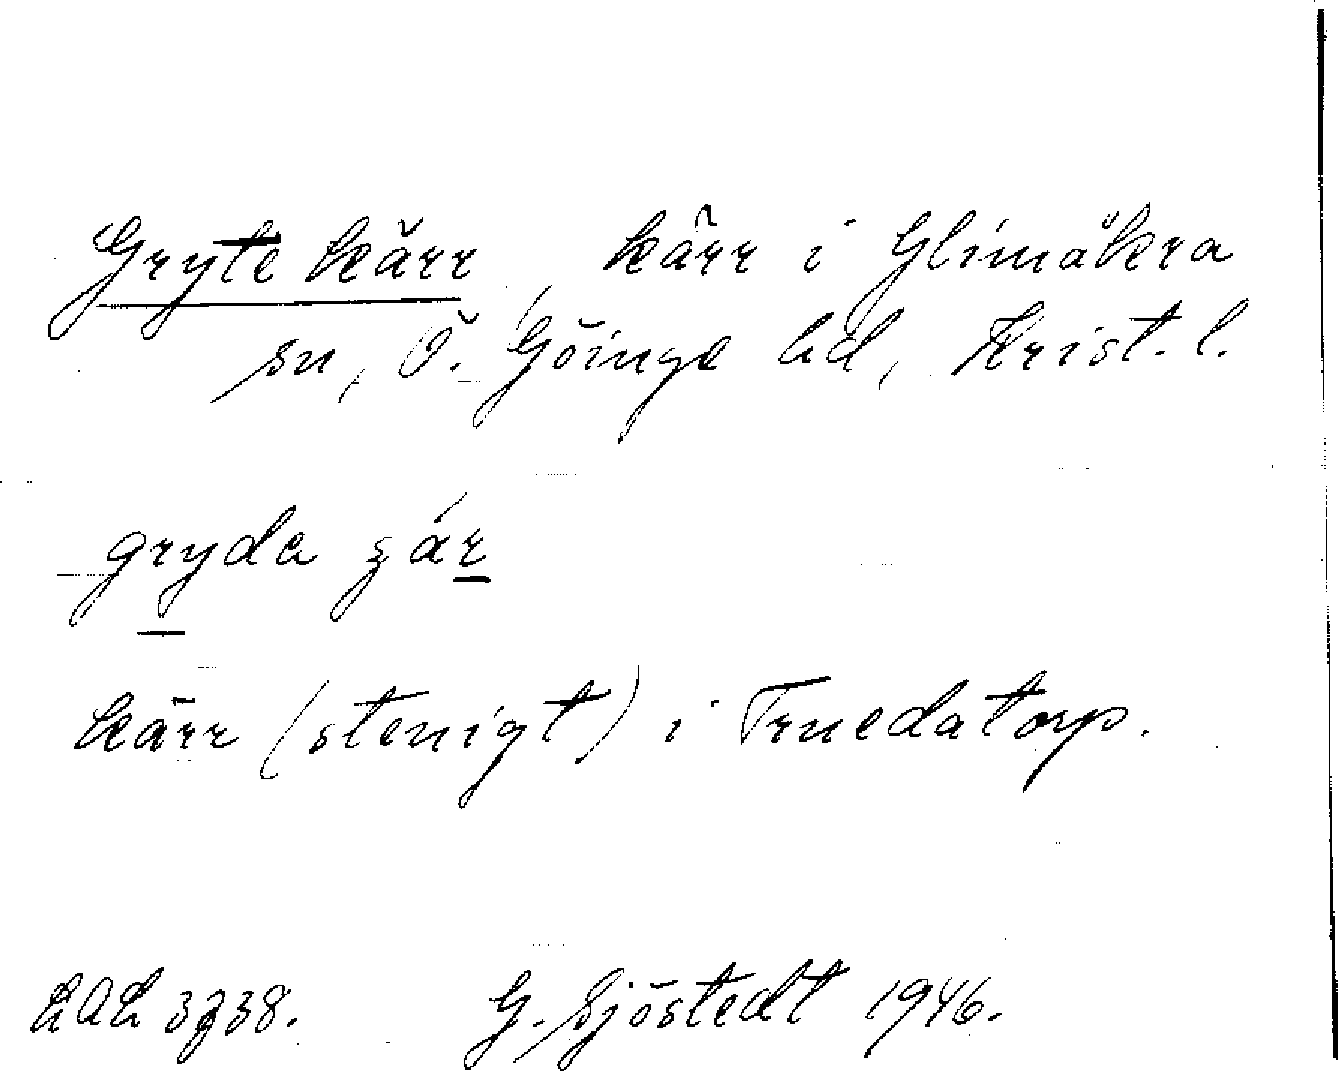 Gryte kärr, kärr i Glimåkra
sn, Ö. Göinge hd, Krist. l.
gryda zár
kärr (stenigt) i Truedatorp.
LAL 3738. G. Sjöstedt 1946.